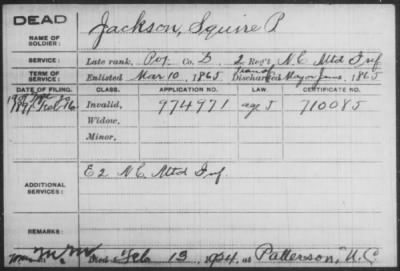 DEAD
NAME OF SOLDIER: Jackson, Squire P
SERVICE: Late rank, Pvt. Co. D, 2 Reg't N.C. Mtd Inf
TERM OF SERVICE: Enlisted Mar 10, 1865 Discharged 1865
DATE OF FILING. CLASS. APPLICATION NO. LAW. CERTIFICATE NO.
Invalid, 974971 710085
Widow,
Minor,
ADDITIONAL SERVICES: E 2 N.C. Mtd Inf.
REMARKS:
Died Feb 13, 1924, at Patterson, N.C.